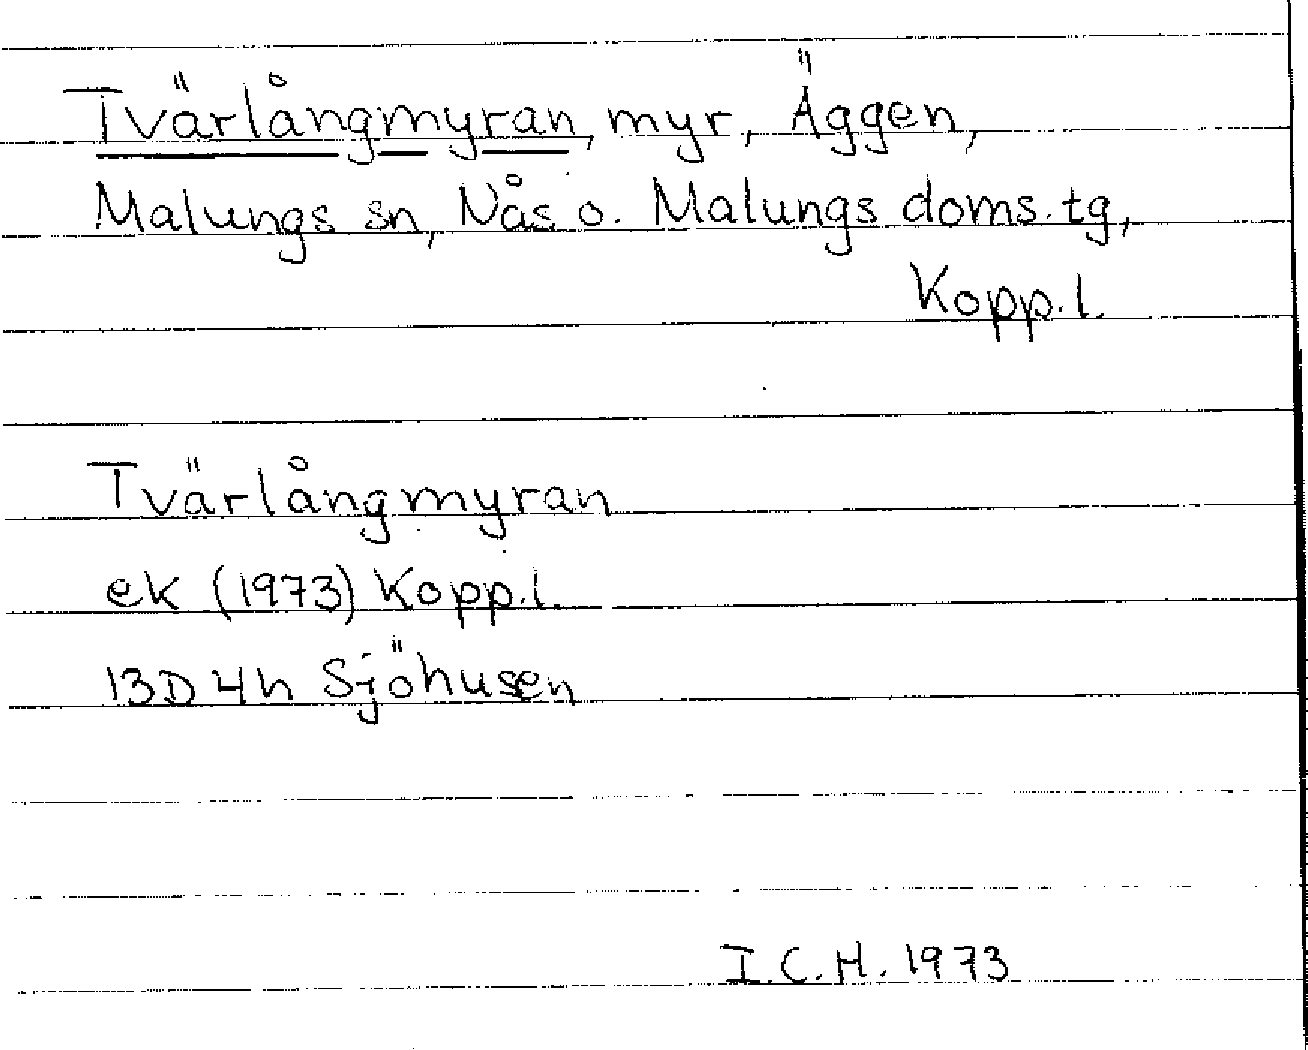 Tvärlångmyran, myr, Äggen,
Malungs sn, Nås o. Malungs doms. tg,
Kopp. l.
Tvärlångmyran
ek (1973) Kopp. l.
13D 4h Sjöhusen
I.C.H. 1973